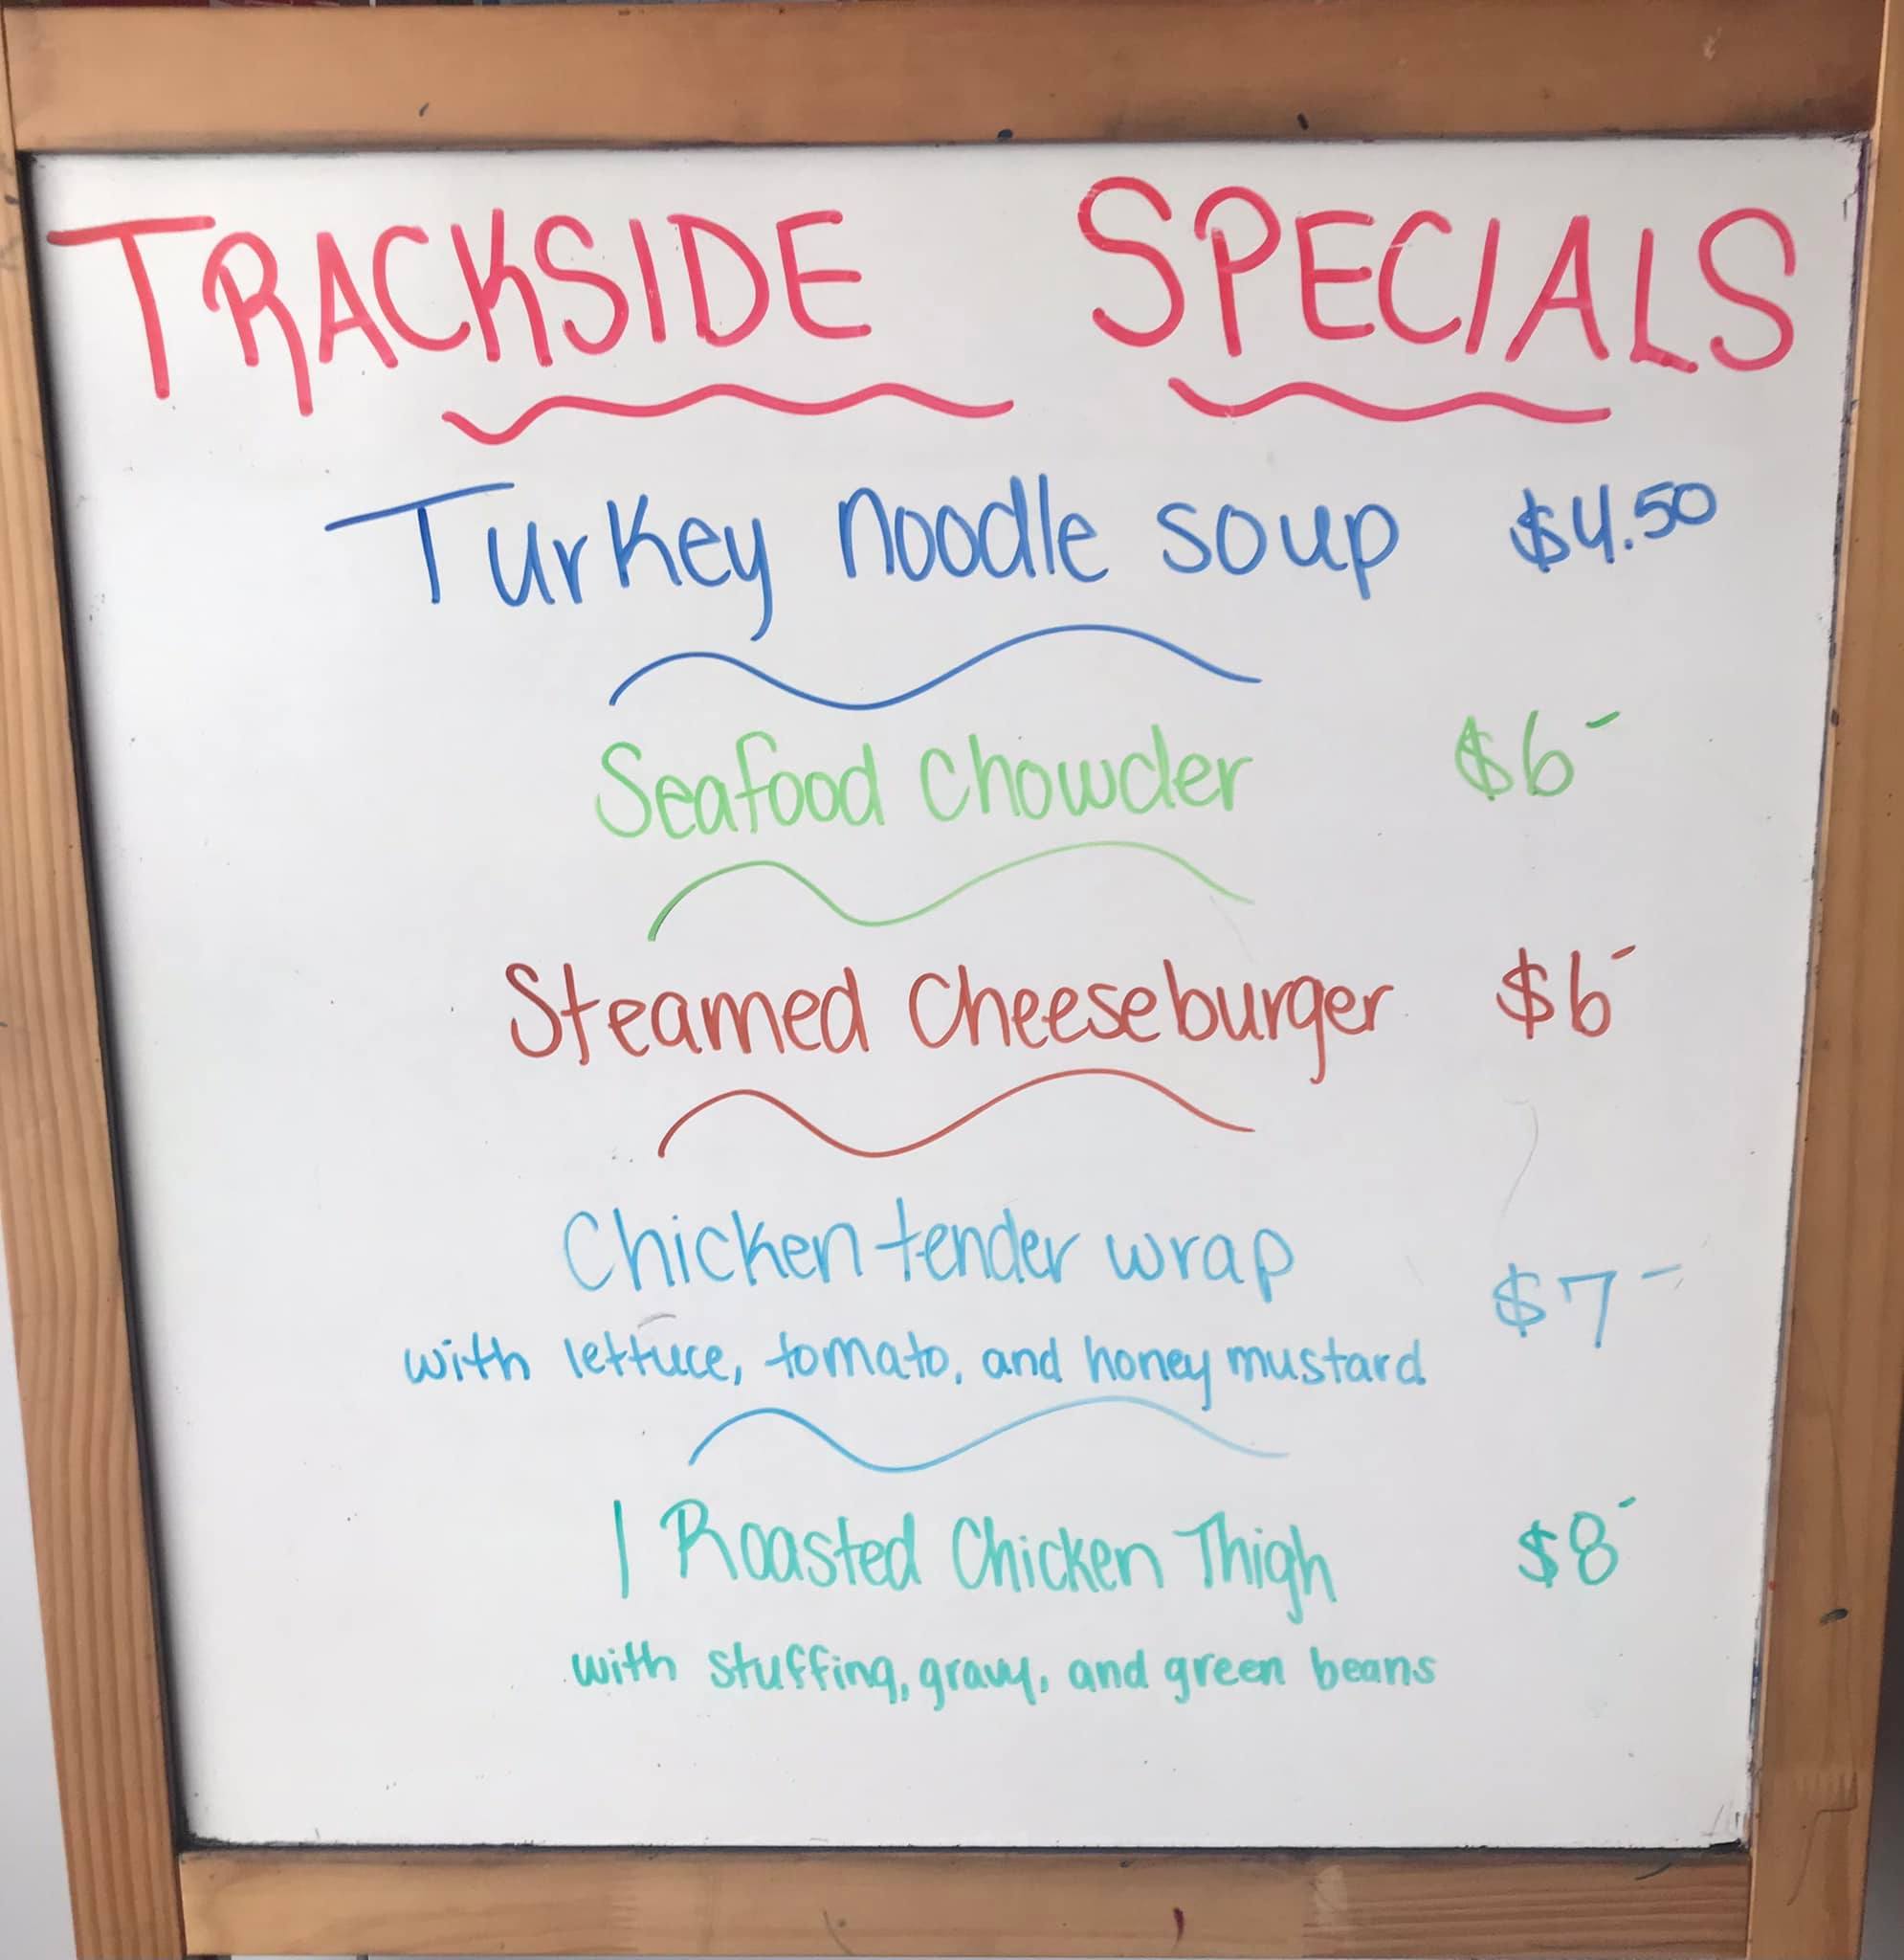 TRACKSIDE SPECIALS
Turkey noodle soup $4.50
Seafood chowder $6-
Steamed cheeseburger $6-
Chicken tender wrap $7-
with lettuce, tomato, and honey mustard
1 Roasted Chicken Thigh $8-
with stuffing, gravy, and green beans